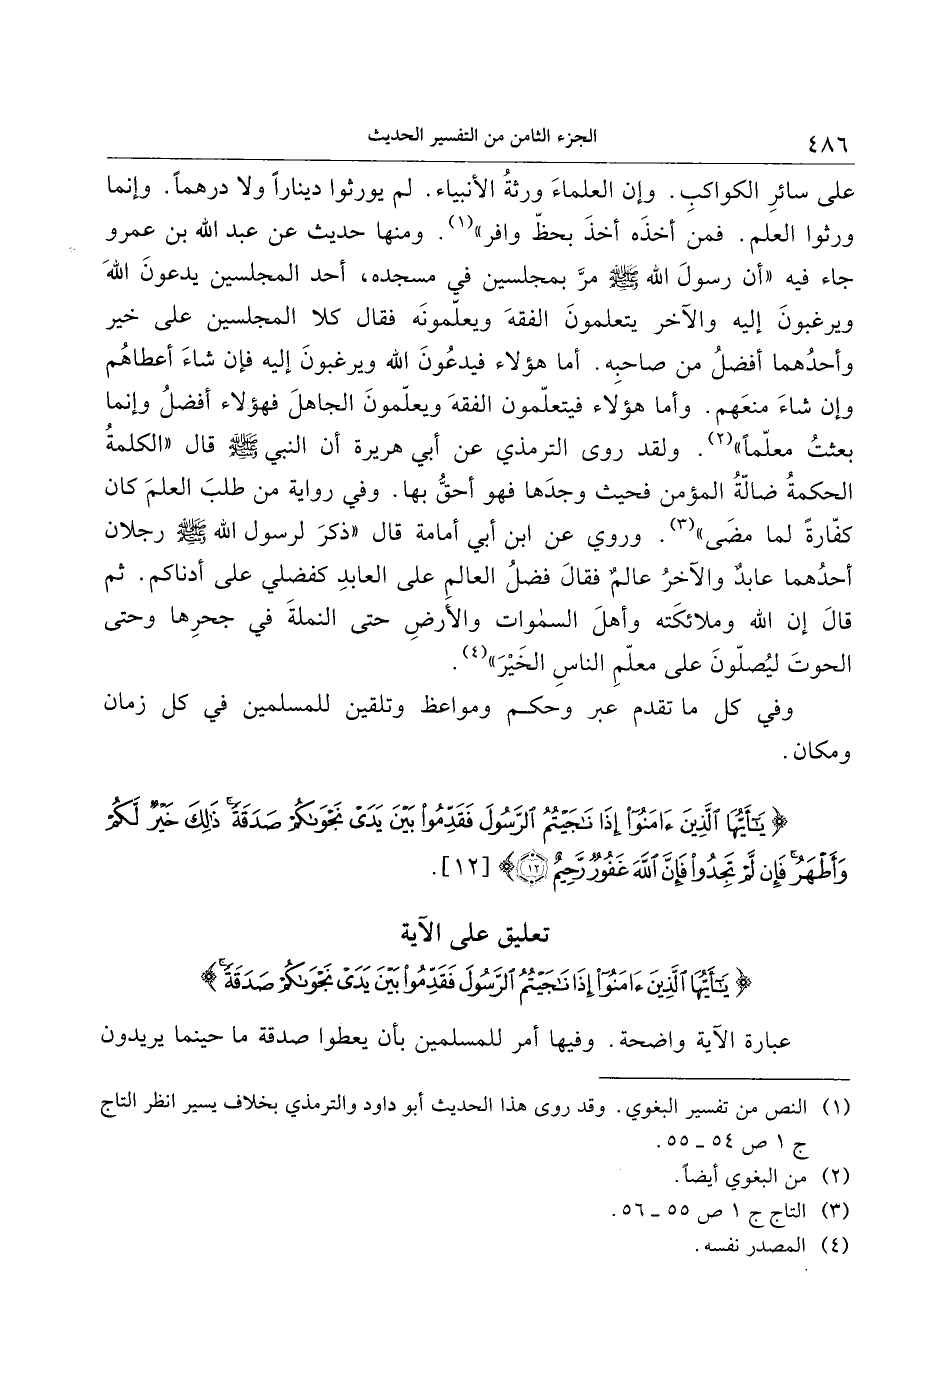 ٤٨٦
الجزء الثامن من التفسير الحديث
على سائرِ الكواكبِ. وإن العلماءَ ورثةُ الأنبياء. لم يورثوا ديناراً ولا درهماً. وإنما
ورثوا العلم. فمن أخذَه أخذَ بحظّ وافر»(١). ومنها حديث عن عبد الله بن عمرو
جاء فيه «أن رسولَ الله ﷺ مرَّ بمجلسين في مسجده، أحد المجلسين يدعونَ اللهَ
ويرغبونَ إليه والآخر يتعلمونَ الفقهَ ويعلّمونَه فقال كلا المجلسين على خير
وأحدُهما أفضلُ من صاحبِه. أما هؤلاء فيدعُونَ الله ويرغبونَ إليه فإن شاءَ أعطاهُم
وإن شاءَ منعَهم. وأما هؤلاء فيتعلّمون الفقهَ ويعلّمونَ الجاهلَ فهؤلاء أفضلُ وإنما
بعثتُ معلّماً»(٢). ولقد روى الترمذي عن أبي هريرة أن النبي ﷺ قال «الكلمةُ
الحكمةُ ضالّةُ المؤمن فحيث وجدَها فهو أحقُّ بها. وفي رواية من طلبَ العلمَ كان
كفّارةً لما مضَى»(٣). وروي عن ابن أبي أمامة قال «ذكرَ لرسول الله ﷺ رجلان
أحدُهما عابدٌ والآخرُ عالمٌ فقالَ فضلُ العالمِ على العابدِ كفضلي على أدناكم. ثم
قالَ إن الله وملائكته وأهلَ السمٰوات والأرضِ حتى النملةَ في جحرِها وحتى
الحوتَ ليُصلّونَ على معلّمِ الناسِ الخَيْرَ»(٤).
وفي كل ما تقدم عبر وحكم ومواعظ وتلقين للمسلمين في كل زمان
ومكان.
﴿يَٰٓأَيُّهَا ٱلَّذِينَ ءَامَنُوٓا۟ إِذَا نَٰجَيْتُمُ ٱلرَّسُولَ فَقَدِّمُوا۟ بَيْنَ يَدَىْ نَجْوَىٰكُمْ صَدَقَةً ۚ ذَٰلِكَ خَيْرٌ لَّكُمْ
وَأَطْهَرُ ۚ فَإِن لَّمْ تَجِدُوا۟ فَإِنَّ ٱللَّهَ غَفُورٌ رَّحِيمٌ ١٢﴾ [١٢].
تعليق على الآية
﴿يَٰٓأَيُّهَا ٱلَّذِينَ ءَامَنُوٓا۟ إِذَا نَٰجَيْتُمُ ٱلرَّسُولَ فَقَدِّمُوا۟ بَيْنَ يَدَىْ نَجْوَىٰكُمْ صَدَقَةً ۚ﴾
عبارة الآية واضحة. وفيها أمر للمسلمين بأن يعطوا صدقة ما حينما يريدون
(١) النص من تفسير البغوي. وقد روى هذا الحديث أبو داود والترمذي بخلاف يسير انظر التاج
ج ١ ص ٥٤ ـ ٥٥.
(٢) من البغوي أيضاً.
(٣) التاج ج ١ ص ٥٥ ـ ٥٦.
(٤) المصدر نفسه.